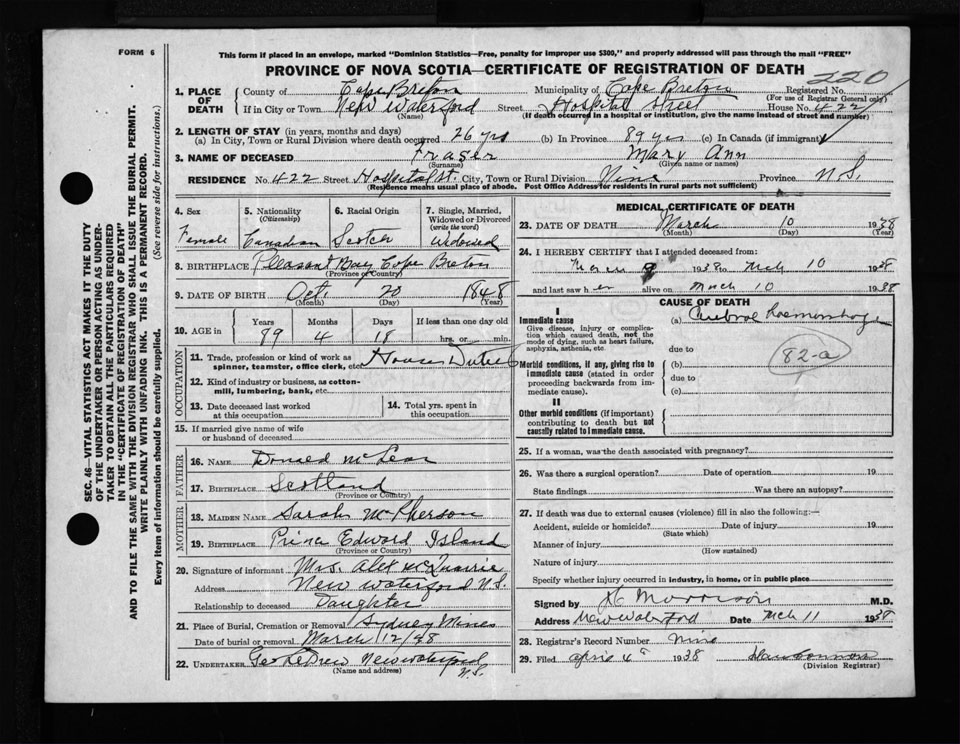 FORM 6
This form if placed in an envelope, marked "Dominion Statistics—Free, penalty for improper use $300," and properly addressed will pass through the mail "FREE"
PROVINCE OF NOVA SCOTIA—CERTIFICATE OF REGISTRATION OF DEATH
220
1. PLACE OF DEATH County of Cape Breton Municipality of Cape Breton Registered No.
(For use of Registrar General only)
If in City or Town New Waterford Street Hospital Street House No. 422
(Name) (If death occurred in a hospital or institution, give the name instead of street and number)
2. LENGTH OF STAY (in years, months and days)
(a) In City, Town or Rural Division where death occurred 26 yrs (b) In Province 89 yrs (c) In Canada (if immigrant)
3. NAME OF DECEASED Fraser Mary Ann
(Surname) (Given name or names)
RESIDENCE No. 422 Street Hospital St. City, Town or Rural Division Province N.S.
(Residence means usual place of abode. Post Office Address for residents in rural parts not sufficient)
4. Sex 5. Nationality (Citizenship) 6. Racial Origin 7. Single, Married, Widowed or Divorced (write the word)
Female Canadian Scotch Widowed
8. BIRTHPLACE Pleasant Bay Cape Breton
(Province or Country)
9. DATE OF BIRTH Oct. 20 1848
(Month) (Day) (Year)
10. AGE in Years Months Days If less than one day old
89 4 18 hrs. or min.
OCCUPATION
11. Trade, profession or kind of work as spinner, teamster, office clerk, etc. House Duties
12. Kind of industry or business, as cotton-mill, lumbering, bank, etc.
13. Date deceased last worked at this occupation
14. Total yrs. spent in this occupation
15. If married give name of wife or husband of deceased
FATHER
16. NAME Donald McLean
17. BIRTHPLACE Scotland
(Province or Country)
MOTHER
18. MAIDEN NAME Sarah McPherson
19. BIRTHPLACE Prince Edward Island
(Province or Country)
20. Signature of informant Mrs. Alex McQuarrie
Address New Waterford N.S.
Relationship to deceased Daughter
21. Place of Burial, Cremation or Removal Sydney Mines
Date of burial or removal March 12/38
22. UNDERTAKER New Waterford N.S.
(Name and address)
MEDICAL CERTIFICATE OF DEATH
23. DATE OF DEATH March 10 1938
(Month) (Day) (Year)
24. I HEREBY CERTIFY that I attended deceased from:
March 9 1938 to Mch 10 1938
and last saw her alive on March 10 1938
CAUSE OF DEATH
I
Immediate cause (a) Cerebral Haemorrhage
Give disease, injury or complication which caused death, not the mode of dying, such as heart failure, asphyxia, asthenia, etc.
due to
82-a
Morbid conditions, if any, giving rise to immediate cause (stated in order proceeding backwards from immediate cause).
(b)
due to
(c)
II
Other morbid conditions (if important) contributing to death but not causally related to immediate cause.
25. If a woman, was the death associated with pregnancy?
26. Was there a surgical operation? Date of operation 19
State findings Was there an autopsy?
27. If death was due to external causes (violence) fill in also the following:—
Accident, suicide or homicide? Date of injury 19
(State which)
Manner of injury
(How sustained)
Nature of injury
Specify whether injury occurred in industry, in home, or in public place
Signed by Morrison M.D.
Address New Waterford Date Mch 11 1938
28. Registrar's Record Number Nine
29. Filed April 4 1938
(Division Registrar)
SEC. 46—VITAL STATISTICS ACT MAKES IT THE DUTY
OF THE UNDERTAKER OR PERSON ACTING AS UNDER-
TAKER TO OBTAIN ALL THE PARTICULARS REQUIRED
IN THE "CERTIFICATE OF REGISTRATION OF DEATH"
AND TO FILE THE SAME WITH THE DIVISION REGISTRAR WHO SHALL ISSUE THE BURIAL PERMIT.
WRITE PLAINLY WITH UNFADING INK. THIS IS A PERMANENT RECORD.
Every item of information should be carefully supplied. (See reverse side for instructions.)